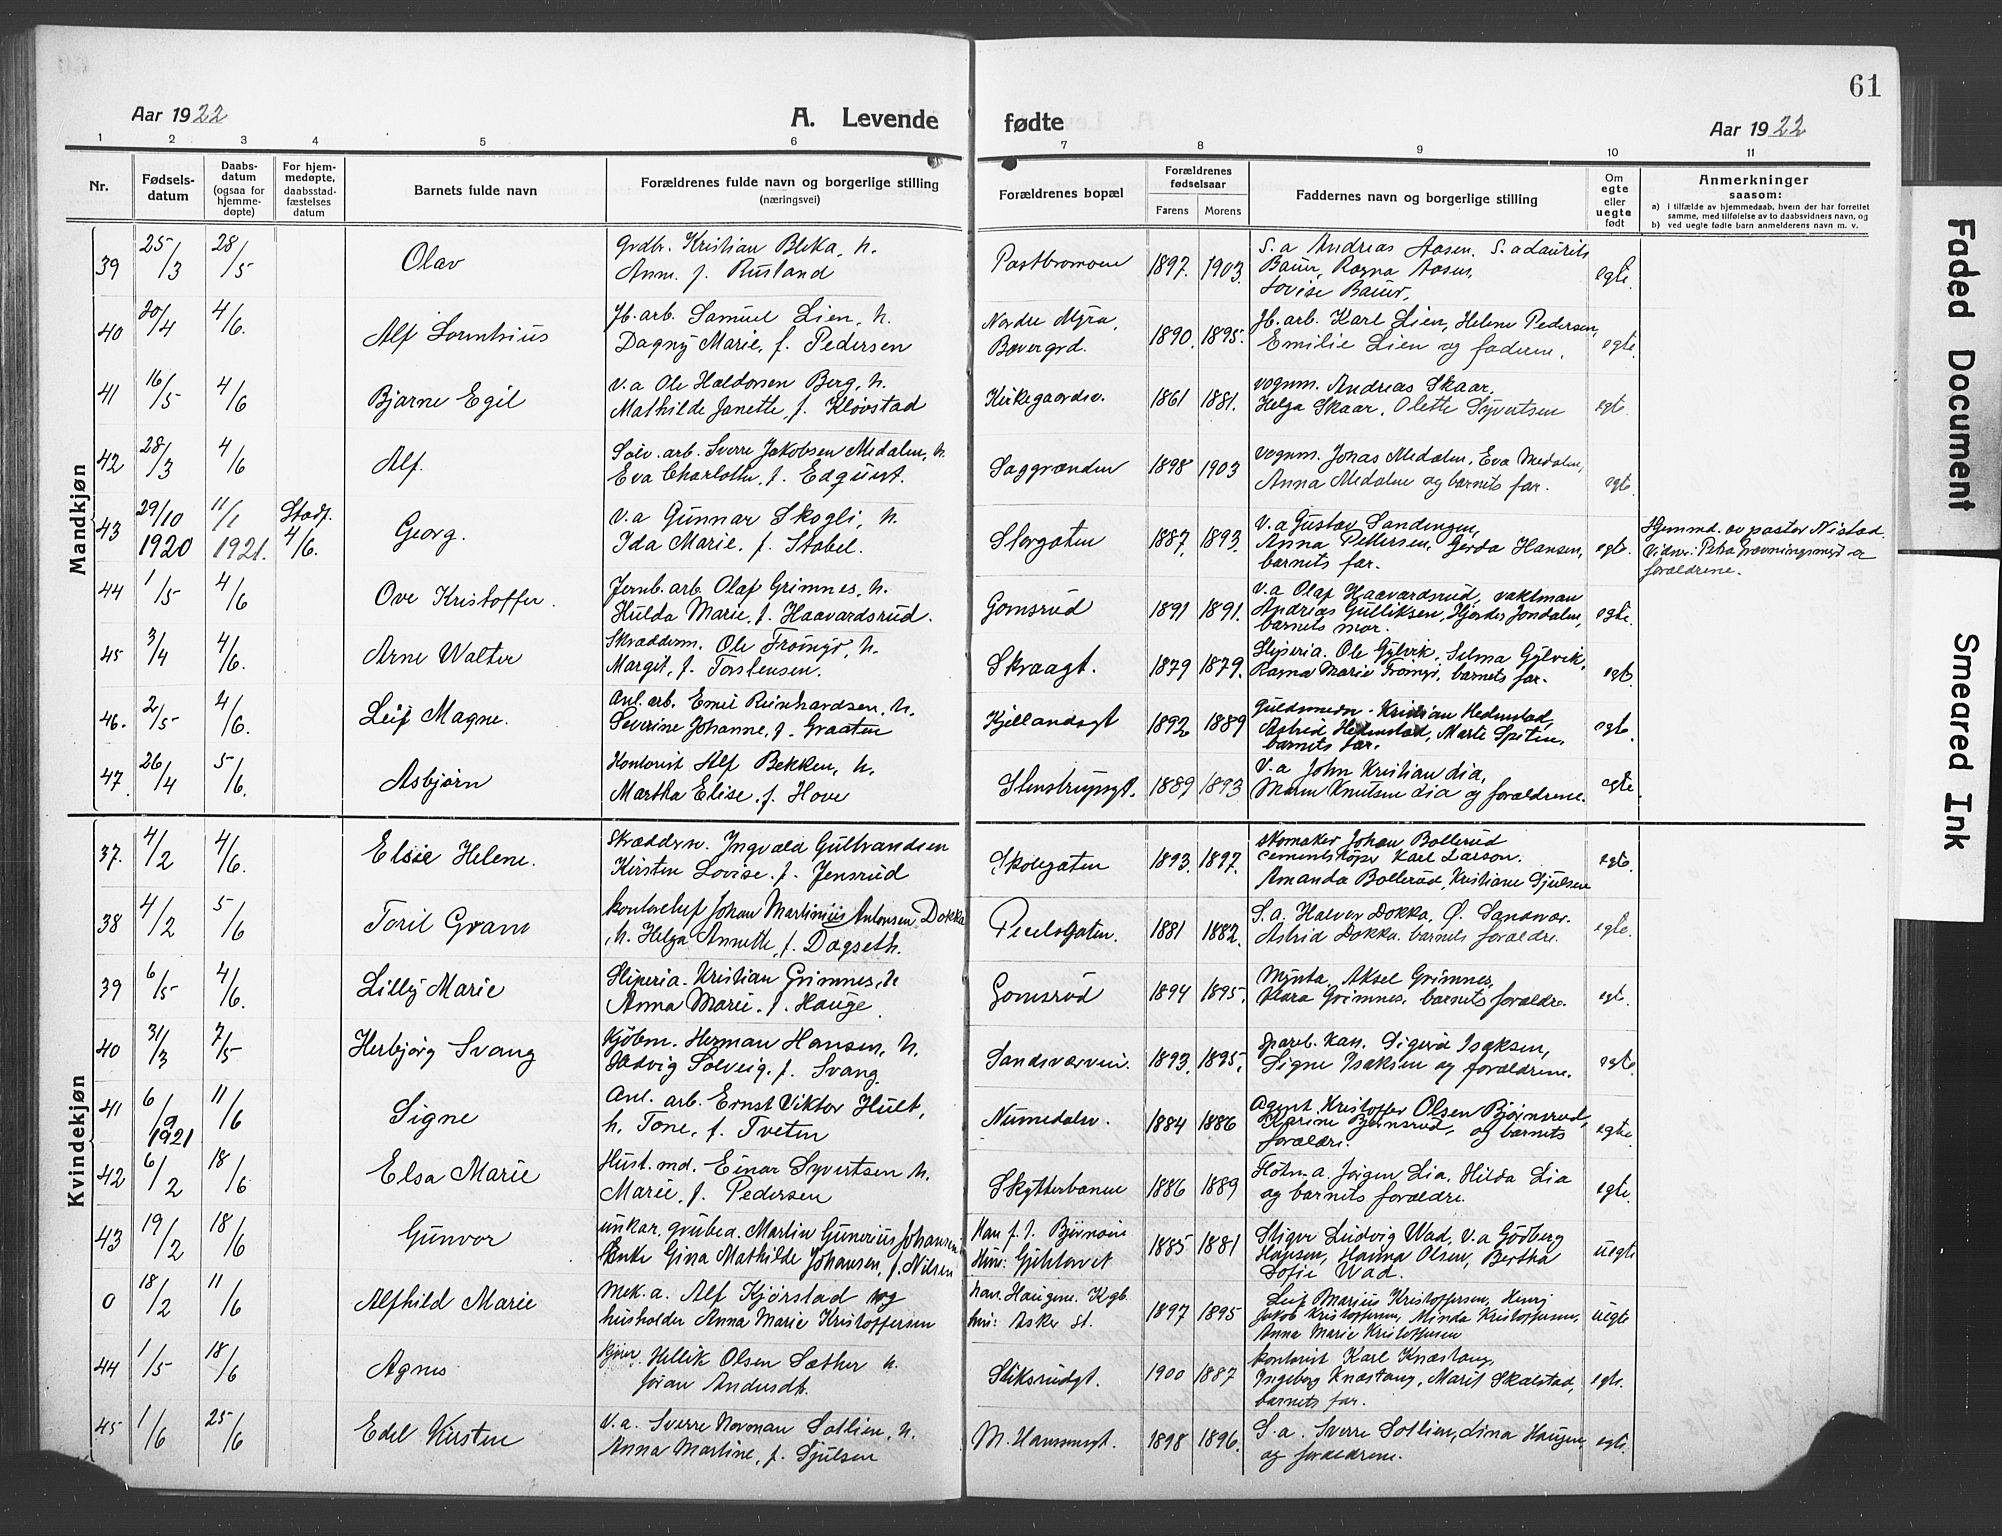 61
Aar 1922
A. Levende
fødte
Aar 1922
1 2 3 4 5 6 7 8 9 10 11
Nr.
Fødsels-
datum
Daabs-
datum
(ogsaa for
hjemme-
døpte)
For hjem-
medøpte,
daabsstad-
fæstelses
datum
Barnets fulde navn
Forældrenes fulde navn og borgerlige stilling
(næringsvei)
Forældrenes bopæl
Forældrenes
fødselsaar
Farens Morens
Faddernes navn og borgerlige stilling
Om
egte
eller
uegte
født
Anmerkninger
saasom:
a) i tilfælde av hjemmedaab, hvem der har forrettet
samme, med tilføielse av to daabsvidners navn, og
b) ved uegte fødte barn anmelderens navn m. v.
Mandkjøn
39 25/3 28/5 Olav
Grdbr. Kristian Bleka, h.
Anna f. Rusland
1897. 1903.
S.a Andreas Aasen, S.a Laurits
Bauer, Ragna Aasen,
Lovise Bauer.
egte.
40 20/4 4/6. Alf
Jb. arb. Samuel Lien, h.
Dagny Marie, f. Pedersen
Nordre Myra,
Bævergrd.
1890. 1895.
Jb. arb. Karl Lien, Helene Pedersen,
Emilie Lien og faderen.
egte.
41 16/5 4/6 Bjarne Egil
V.a Ole Haldorsen Berg, h.
Mathilde Janette, f. Kløvstad
Kirkegaardsv.
1861 1881.
vognm. Andreas Skaar,
Helga Skaar, Olette Syvertsen
egte.
42 28/3 4/6 Alf.
Sølv. arb. Sverre Jakobsen Medalen, h.
Eva Charlotte, f. Edquist.
Saggrenden
1898 1903
vognm. Jonas Medalen, Eva Medalen,
Anna Medalen og barnets far.
egte.
43 29/10 1920 11/1 1921. Stadf. 4/6. Georg.
V.a Gunnar Skogli, h.
Ida Marie, f. Stabel.
Storgaten
1887. 1893.
V.a Gustav Sandengen,
Anna Pettersen, Gerda Hansen,
barnets far.
egte.
Hjemmd. av pastor Nistad.
Vidner: Petra
forældrene.
44 1/5 4/6 Ove Kristoffer.
Jernb. arb. Olaf Grimnes, h.
Hulda Marie, f. Haavardsrud.
Gomsrud
1891 1891.
V.a Olaf Haavardsrud, vaktman
Andreas Gulliksen, Hjørdis Jondalen,
barnets mor.
egte.
45 3/4 4/6. Arne Walter
Skræddern. Ole Tromsjø, h.
Margit, f. Torstensen.
Skraagt.
1879 1879.
Sliperia. Ole Gylvik, Selma Gylvik,
Ragna Marie barnets far.
egte.
46. 2/5 4/6. Leif Magne.
Anl. arb. Emil Reinhardsen, h.
Severine Johanne, f. Graaten
Kjellandsgt
1892 1889
Guldsmedm. Kristian Hedenstad,
Astrid Hedenstad, Marte Speten,
barnets far.
egte.
47. 26/4 5/6. Asbjørn
Kontorist Alf Bekken, h.
Martha Elise, f. Hove
Stenstrupsgt.
1889 1893
V.a John Kristian Lia,
Maren Knutsen Lia og forældrene.
egte.
Kvindekjøn
37. 4/2 4/6. Elsie Helene.
Skræddern. Ingvald Gulbrandsen
Kirsten Lovise, f. Jensrud
Skolegaten
1893. 1897.
Skomaker Johan Bollerud
Karl Larson.
Amanda Bollerud, Kristiane Sjulsen
egte.
38 4/2 5/6 Toril Gram
Kontorchef Johan Martinius Antonsen Dokka
, h. Helga Annette, f. Dagseth.
1881 1882.
S.a. Halvor Dokka, Ø. Sandsvær.
Astrid Dokka. barnets forældre.
egte.
39 6/5 4/6. Lilly Marie
Sliperia. Kristian Grimnes, h
Anna Marie, f. Hauge.
Gomsrud
1894 1895.
Mynta, Aksel Grimnes,
Klara Grimnes. barnets forældre.
egt.
40 31/3 7/5. Herbjørg Svang
Kjøbm. Herman Hansen, h.
Hedvig Solveig, f. Svang.
Sandsværvein.
1893. 1895.
Spareb. kas. Sigurd Isaksen,
Signe Isaksen og forældrene.
egte.
41 6/9 1921 11/6 Signe
Anl. arb. Ernst Viktor Hult,
h. Tone, f. Tveten
Numedalsv.
1884 1886
Agent Kristoffer Olsen Bjørnsrud,
Karine Bjørnsrud, og barnets
forældre.
egte
42 6/2 18/6 Elsa Marie
Hust. md. Einar Syvertsen h.
Marie, f. Pedersen
Skytterbanen
1886 1889
Fløtn.a. Jørgen Lia, Hilda Lia
og barnets forældre.
egte.
43 19/2 18/6 Gunvor
unkar. grubea. Martin Gunerius Johansen
Enke Gina Mathilde Johansen, f. Nilsen
Han f. J.
Hun:
1885 1881
Stiger Ludvig Wad, V.a Godberg
Hansen, Hanna Olsen, Bertha
Dofie Wad.
uegte
0 18/2 11/6 Alfhild Marie
Mek.a. Alf Kjørstad og
husholder Anna Marie Kristoffersen
han. Haugene. Kgb.
hun: Asker st.
1897 1895
Leif Marius Kristoffersen, Henry
Jakob Kristoffersen, Minda Kristoffersen,
Anna Marie Kristoffersen
uegte
44 1/5 18/6 Agnes
Kjører Hellik Olsen Sæther h.
Jøran Andersdt.
Stiksrudgt.
1900 1887
Kontorist Karl Knæstang,
Ingeborg Knæstang, Marit Skalstad,
barnets far.
egte.
45 1/6 25/6 Edel Kirsten
V.a. Sverre Norman Sollien, h.
Anna Martine, f. Sjulsen
M. Hansensgt.
1898 1896.
S.a. Sverre Sollien, Lina Haugen
og forældrene.
egte.
Faded Document
Smeared Ink